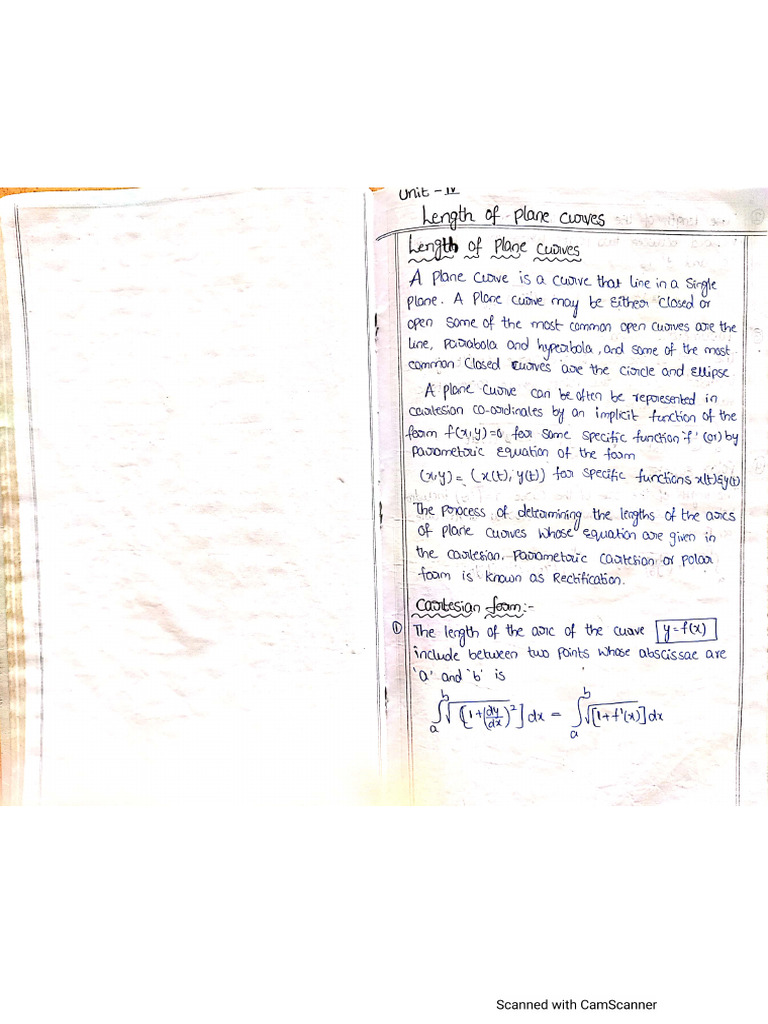 Unit - IV
Length of plane curves
Length of plane curves
A plane curve is a curve that line in a single
plane. A plane curve may be Either closed or
open some of the most common open curves are the
line, parabola and hyperbola, and some of the most
common closed curves are the circle and Ellipse
A plane curve can be often be represented in
cartesian co-ordinates by an implicit function of the
form f(x,y)=0 for some specific function 'f' (or) by
parametric equation of the form
(x,y) = (x(t), y(t)) for specific functions x(t) & y(t)
The process of determining the lengths of the arcs
of plane curves whose equation are given in
the cartesian. parametric cartesion or polar
form is known as Rectification.
Cartesian form:-
① The length of the arc of the curve y=f(x)
include between two points whose abscissae are
'a' and 'b' is
∫ₐᵇ √[1+(dy/dx)²] dx = ∫ₐᵇ √[1+f'(x)] dx
Scanned with CamScanner